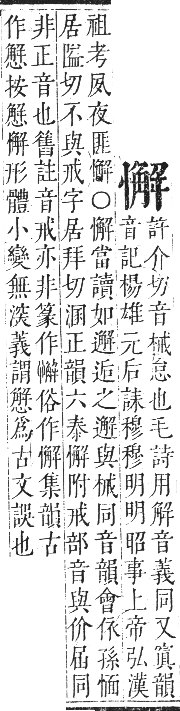 懈
許介切音械怠也毛詩用解音義同又寘韻
音記楊雄元后誄穆穆明明昭事上帝弘漢
祖考夙夜匪懈○懈當讀如邂逅之邂與械同音韻會依孫愐
居隘切不與戒字居拜切溷正韻六泰懈附戒部音與价届同
非正音也舊註音戒亦非篆作俗作懈集韻古
作按懈形體小變無深義謂爲古文誤也